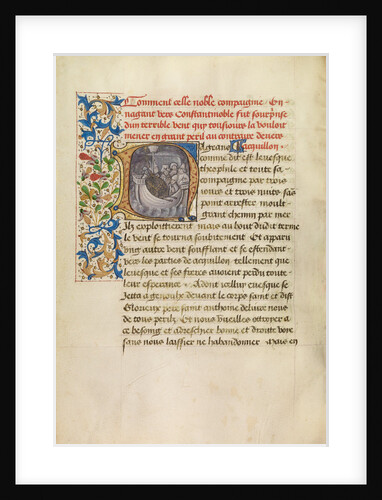 Comment celle noble compaignie En
nagant vers Constantinoble fut sourprise
dun terrible vent quy tousiours la vouloit
mener en grant peril au contraire devers
Nagant Aacquillon
comme dit est levesque
theophile et toute sa
compaignie par trois
iours et trois nuits sās
point arrester moult
grant chemin par mer
Ilz exploittierent mais au bout dudit terme
le vent se tourna soubitement Et apparu
ung autre vent souffler et se estendant
vers les parties de aquillon tellement que
levesque et ses freres avoient perdu toute
leur esperance Adont levesque se
Jetta a genoulz devant le corps saint et dist
Glorieux pere saint anthoine delivre nous
de tous perilz Et nous vueilles ottroyer a
ce besoing et adreschier bonne et droitte voye
sans nous laissier ne habandonner Mais en